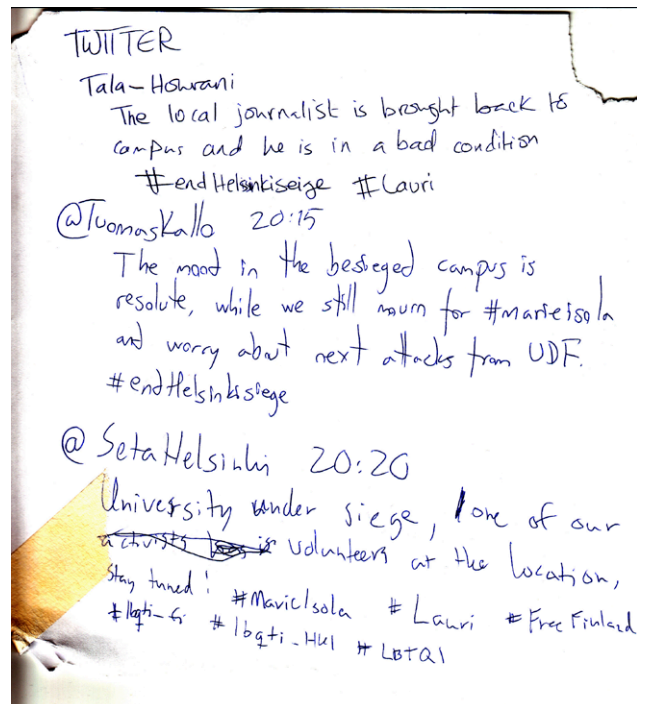 TWITTER
Tala-Howrani
The local journalist is brought back to
campus and he is in a bad condition
#endHelsinkiseige #Lauri
@TuomasKallo 20:15
The mood in the besieged campus is
resolute, while we still mourn for #marieisola
and worry about next attacks from UDF.
#endHelsinkisiege
@SetaHelsinki 20:20
University under siege, one of our
activists is volunteers at the location,
Stay tuned! #MarieIsola #Lauri #FreeFinland
#lbqti-fi #lbqti-HKI #LBTQI